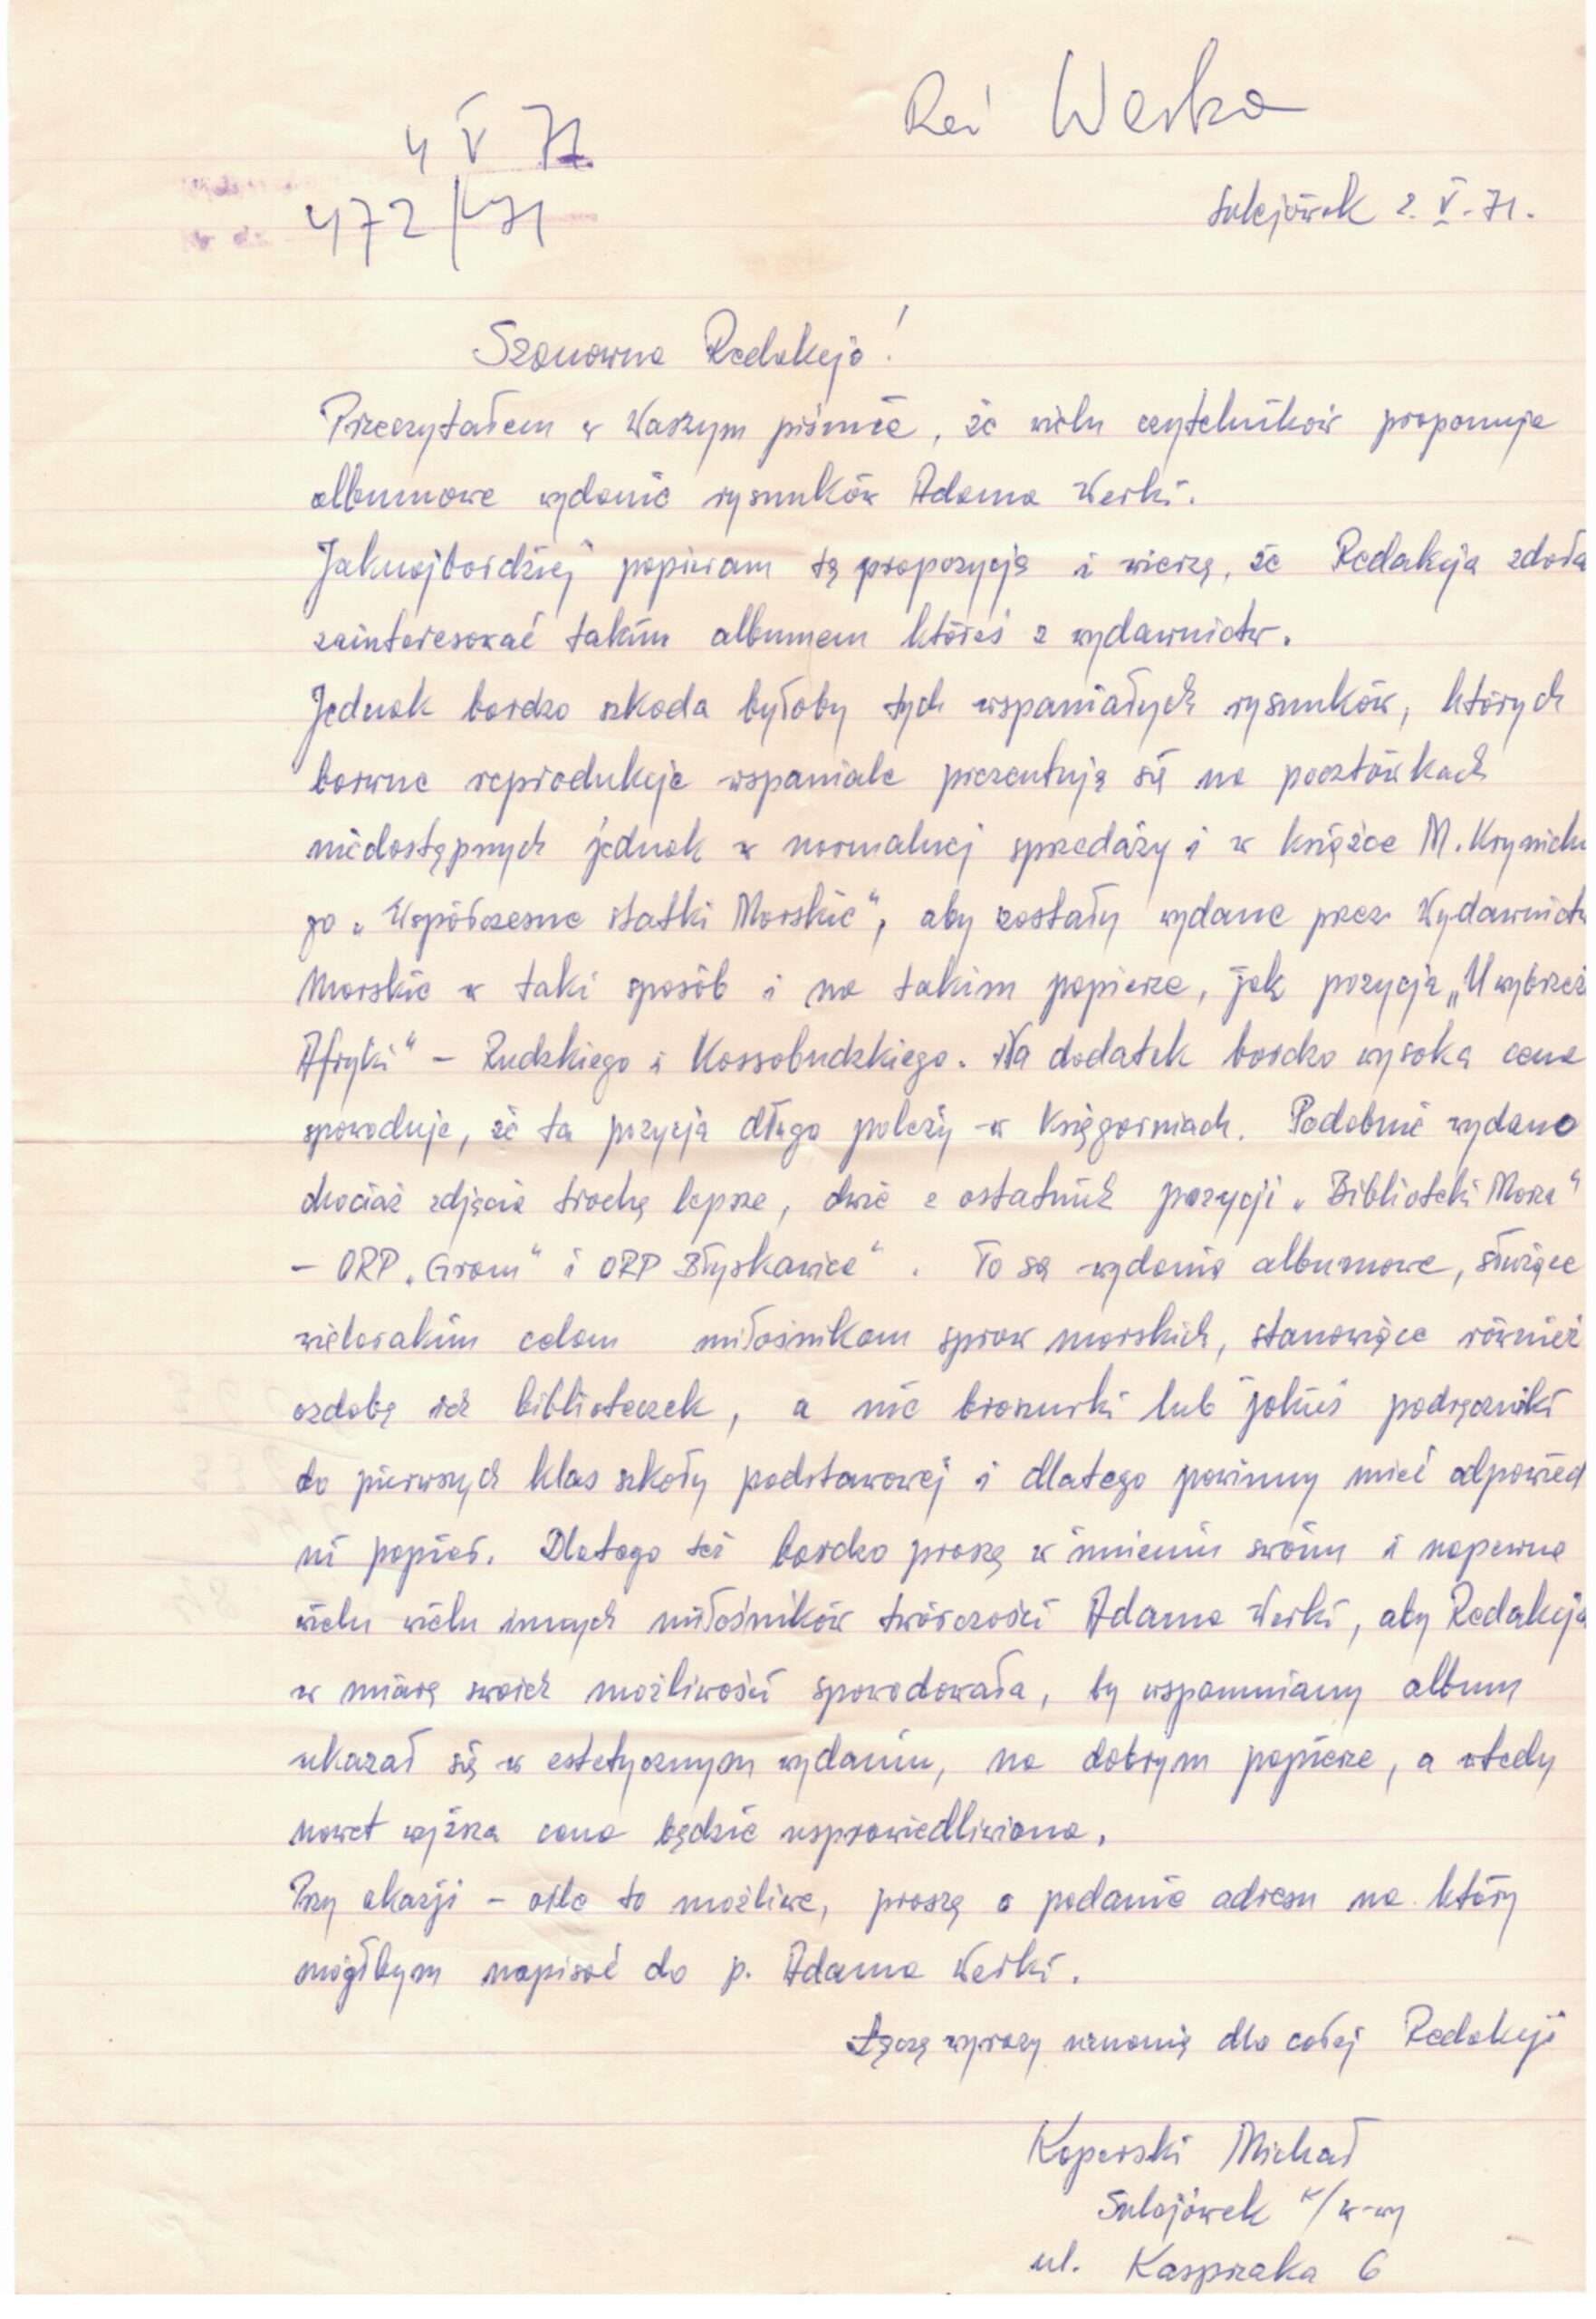 4 V 71
Red Werka
472/71
Sulejówek 2. V. 71.
Szanowna Redakcjo!
Przeczytałem w Waszym piśmie, że wielu czytelników proponuje
albumowe wydanie rysunków Adama Werki.
Jaknajbardziej popieram tą propozycję i wierzę, że Redakcja zdoła
zainteresować takim albumem któreś z wydawnictw.
Jednak bardzo szkoda byłoby tych wspaniałych rysunków, których
barwne reprodukcje wspaniale prezentują się na pocztówkach
niedostępnych jednak w normalnej sprzedaży i w książce M. Krynicke
go „Współczesne statki Morskie", aby zostały wydane przez Wydawnictw
Morskie w taki sposób i na takim papierze, jak pozycja „U wybrzeż
Afryki" – Rudzkiego i Kossobudzkiego. Na dodatek bardzo wysoka cena
spowoduje, że ta pozycja długo poleży w Księgarniach. Podobnie wydano
chociaż zdjęcia trochę lepsze, dwie z ostatnich pozycji „Biblioteki Morza"
– ORP „Grom" i ORP Błyskawica". To są wydania albumowe, służące
wielorakim celom miłośnikom spraw morskich, stanowiące również
ozdobę ich biblioteczek, a nie broszurki lub jakieś podręczniki
do pierwszych klas szkoły podstawowej i dlatego powinny mieć odpowied
ni papier. Dlatego też bardzo proszę w imieniu swoim i napewno
wielu wielu innych miłośników twórczości Adama Werki, aby Redakcja
w miarę swoich możliwości spowodowała, by wspomniany album
ukazał się w estetycznym wydaniu, na dobrym papierze, a wtedy
nawet wyższa cena będzie usprawiedliwiona.
Przy okazji – oile to możliwe, proszę o podanie adresu na który
mógłbym napisać do p. Adama Werki.
Łączę wyrazy uznania dla całej Redakcji
Koperski Michał
Sulejówek k/w-wy
ul. Kasprzaka 6